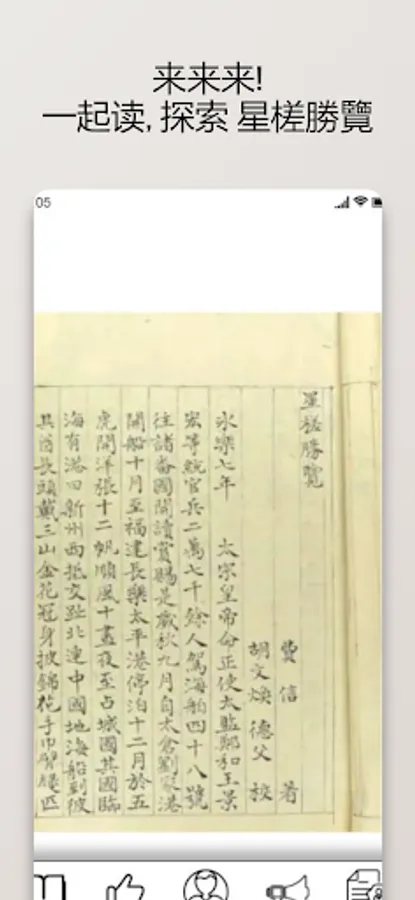 来来来!
一起读, 探索 星槎勝覽
05
星槎勝覽
費信 著
胡文煥 德父 校
永樂七年 太宗皇帝命正使太監鄭和王景
宏等統官兵二萬七千餘人駕海舶四十八號
往諸番國開讀賞賜是歲秋九月自太倉劉家港
開船十月至福建長樂太平港停泊十二月於五
虎開洋張十二帆順風十晝夜至占城國其國臨
海有港曰新州西抵交趾北連中國地海船到彼
其酋長頭戴三山金花冠身披錦花手巾臂腿